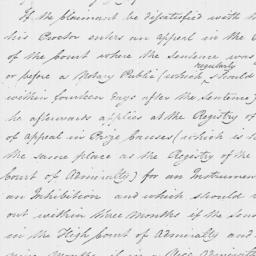 If the Claimant be dissatisfied with t
his Proctor enters an appeal in the
of the Court where the Sentence was
regularly
or before a Notary Public (which should
within fourteen days after the Sentence)
he afterwards applies at the Registry of
of appeal in Prize Causes (which is
the same place as the Registry of the
Court of Admiralty) for an Instrumen
an Inhibition and which should
out within three Months if the Sen
in the High Court of Admiralty and